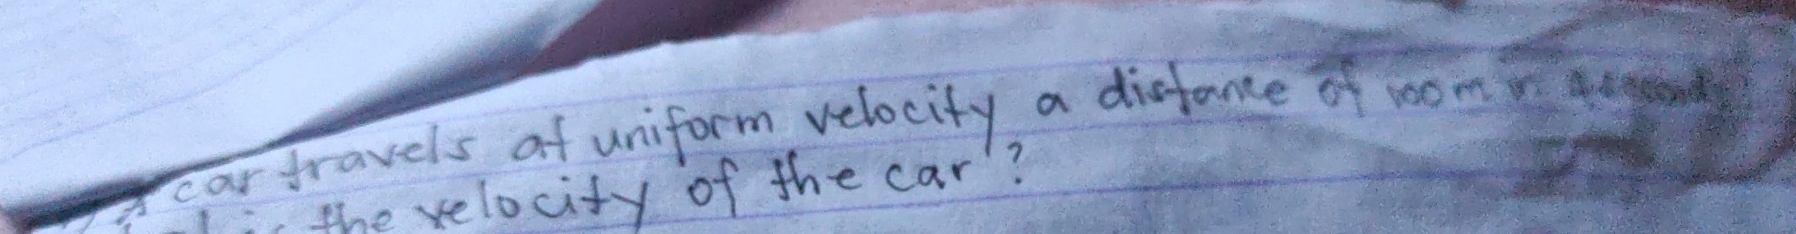 A car travels at uniform velocity a distance of 100m in
is the velocity of the car?